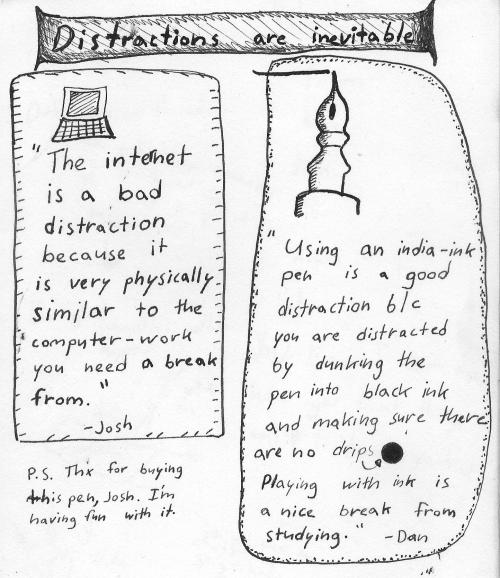 Distractions are inevitable
"The internet
is a bad
distraction
because it
is very physically
similar to the
computer-work
you need a break
from."
-Josh
P.S. Thx for buying
this pen, Josh. I'm
having fun with it.
"Using an india-ink
pen is a good
distraction b/c
you are distracted
by dunking the
pen into black ink
and making sure there
are no drips
Playing with ink is
a nice break from
studying." -Dan